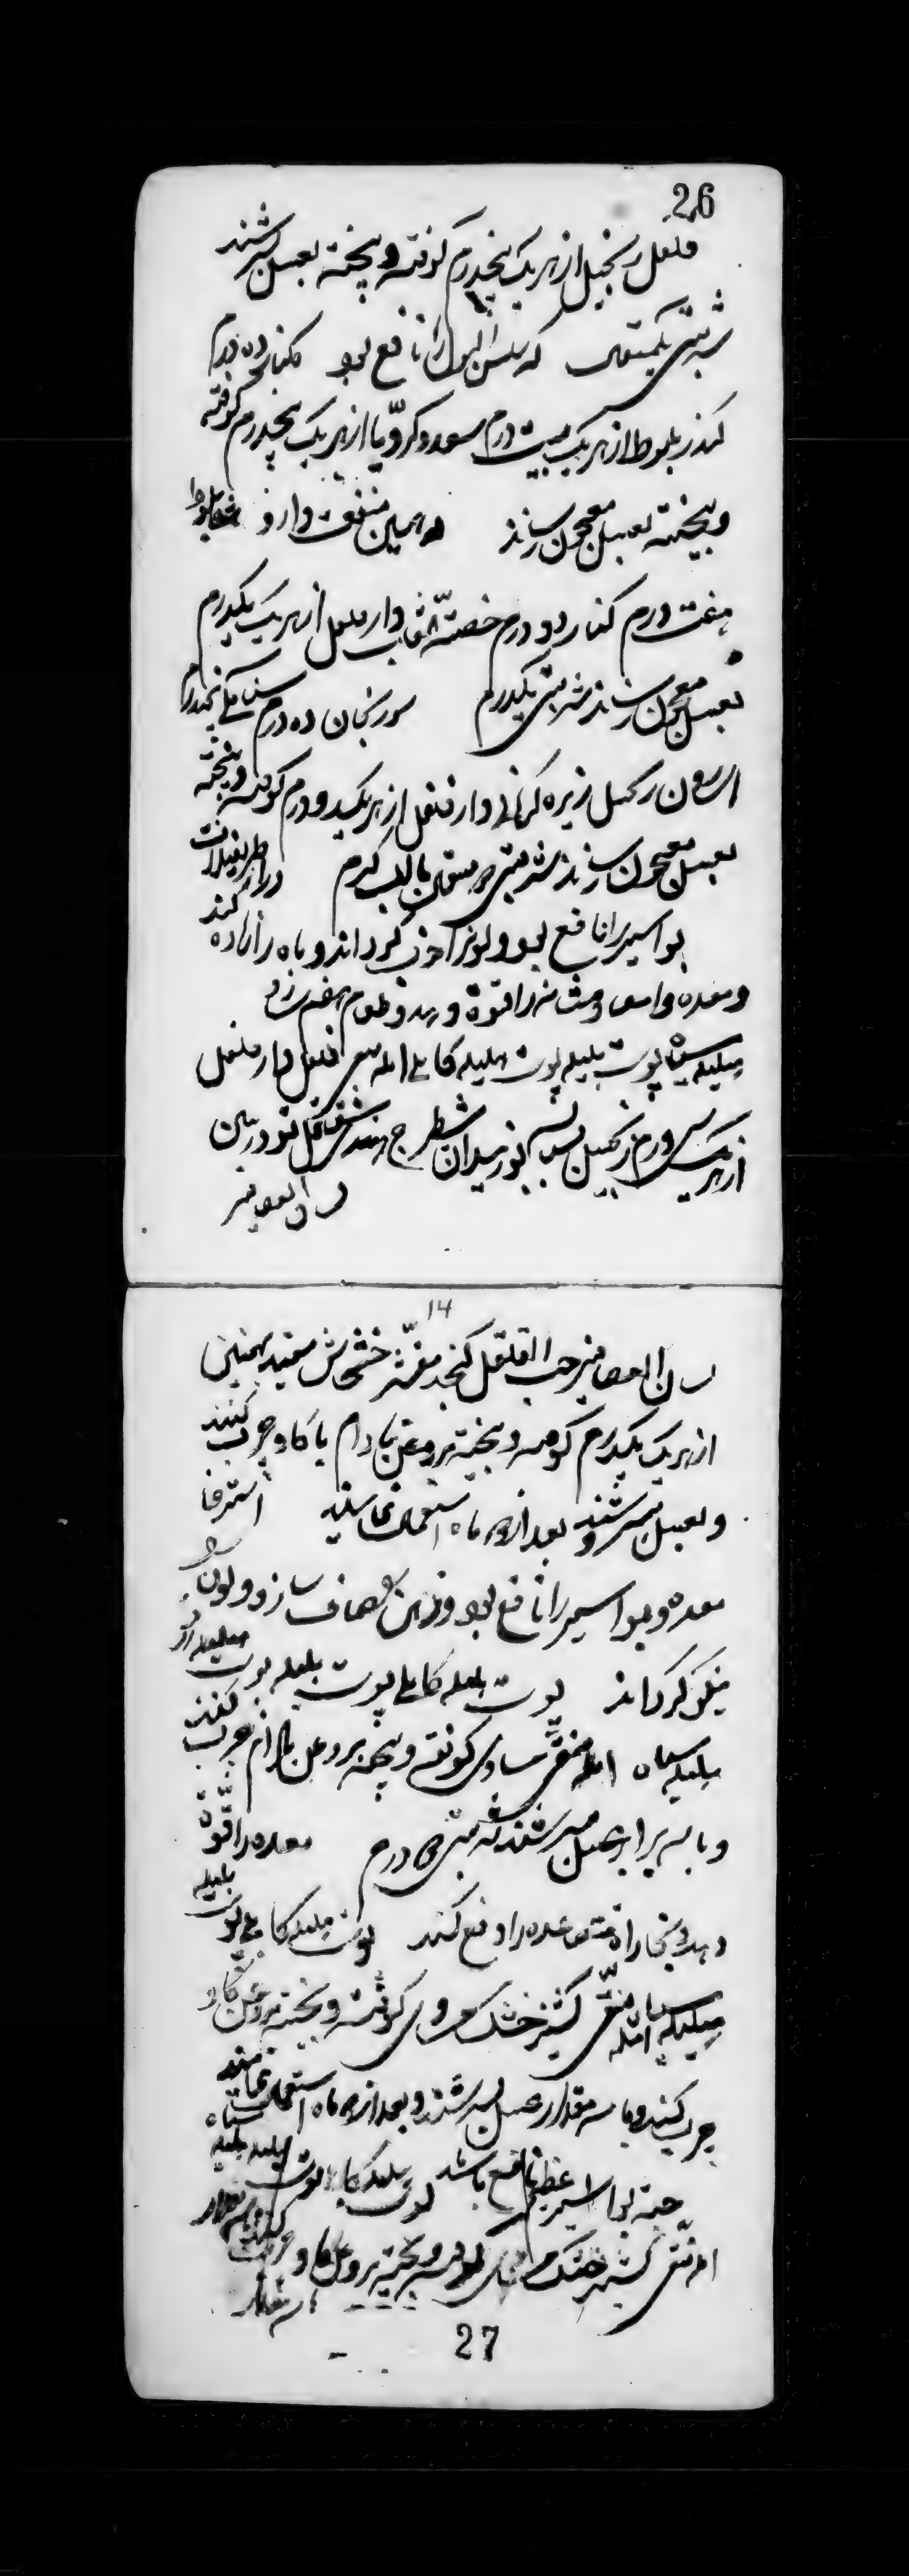 26
فلفل زنجبیل از هر یک پنجدرم کوفته و بیخته بعسل بسرشند
شربتی یکمثقال که سلس البول را نافع بود کندر ده درم
کندر بلوط از هر یک بیست درم سعد و کرویا از هر یک پنجدرم کوفته
و بیخته بعسل معجون سازند همین منفعت دارد بلوط
هفت درم کندر دو درم خصیة الثعلب دارفلفل از هر یک یکدرم
بعسل معجون سازند شربتی یکدرم سورنجان ده درم سنا مکی پنجدرم
زنجبیل زیره کرمانی دارفلفل از هر یک دو درم کوفته و بیخته
بعسل معجون سازند شربتی دو مثقال بآب گرم در اطریفلات
بواسیر را نافع بود و لون را خوب گرداند و باه را زیاده کند
و معده و امعا و مثانه را قوة دهد و طعام هضم
هلیله سیاه پوست بلیله پوست هلیله کابلی آمله فلفل دارفلفل
از هر یک سی درم زنجبیل بسباسه بوزیدان شیطرج هندی شقاقل تودرین
لسان العصافیر
14
لسان العصافیر حب القلقل کنجد مقشر خشخاش سفید بهمنین
از هر یک یکدرم کوفته و بیخته بروغن بادام یا گاو چرب کنند
و بعسل بسرشند و بعد از دو ماه استعمال نمایند استرخا
معده و بواسیر را نافع بود و ذهن صاف سازد و لون
نیکو گرداند پوست هلیله کابلی پوست بلیله پوست هلیله زرد
هلیله سیاه آمله منقی مساوی کوفته و بیخته بروغن بادام چرب کنند
و با سه برابر عسل بسرشند شربتی درم معده را قوة
دهد و بخارات متصاعده را دفع کند پوست هلیله کابلی پوست بلیله
هلیله سیاه آمله منقی کشنیز خشک مساوی کوفته و بیخته بروغن گاو
چرب کنند و با سه مقدار عسل بسرشند و بعد از دو ماه استعمال نمایند
جهة بواسیر عظیم نافع باشد پوست هلیله کابلی پوست بلیله هلیله سیاه
آمله منقی کشنیز خشک مساوی کوفته و بیخته بروغن گاو چرب کنند
با سه مقدار
27